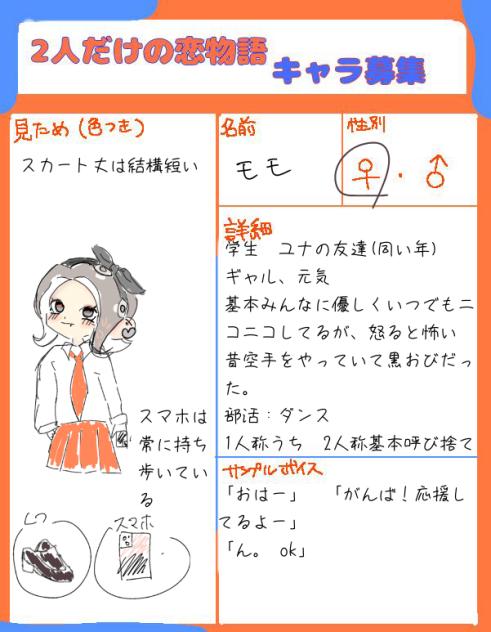 2人だけの恋物語
キャラ募集
見ため(色つき)
スカート丈は結構短い
スマホは
常に持ち
歩いてい
る
くつ
スマホ
名前
モモ
性別
♀・♂
詳細
学生　ユナの友達(同い年)
ギャル、元気
基本みんなに優しくいつでもニ
コニコしてるが、怒ると怖い
昔空手をやっていて黒おびだっ
た。
部活：ダンス
1人称うち　2人称基本呼び捨て
サンプルボイス
「おはー」　「がんば！応援し
てるよー」
「ん。 ok」